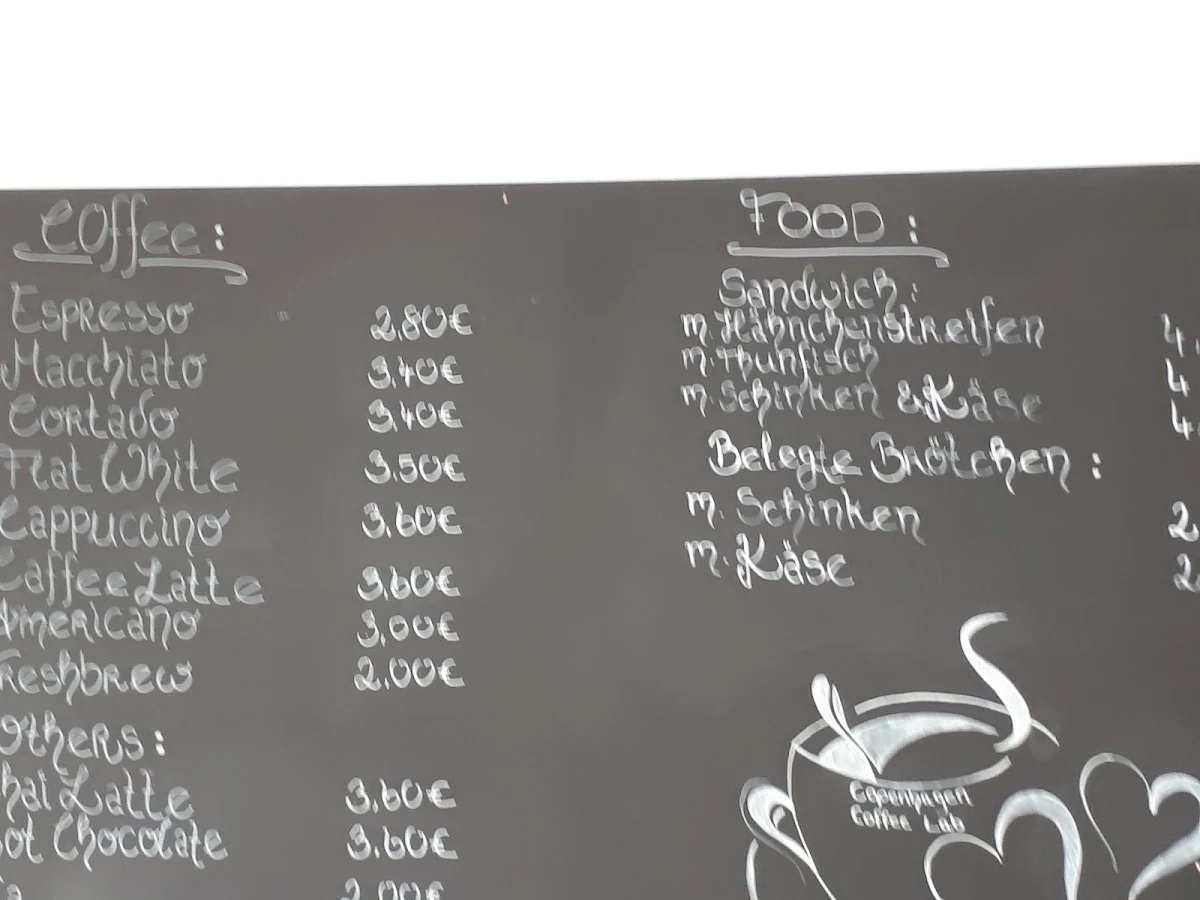 Coffee:
Espresso 2,80€
Macchiato 3,40€
Cortado 3,40€
Flat White 3,50€
Cappuccino 3,60€
Caffee Latte 3,60€
Americano 3,00€
Freshbrew 2,00€
Others:
hai Latte 3,60€
ot Chocolate 3,60€
2,00€
FOOD:
Sandwich:
m. Hähnchenstreifen 4,
m. Thunfisch 4
m. Schinken & Käse 4,
Belegte Brötchen:
m. Schinken 2,
m. Käse 2,
Copenhagen
Coffee Lab